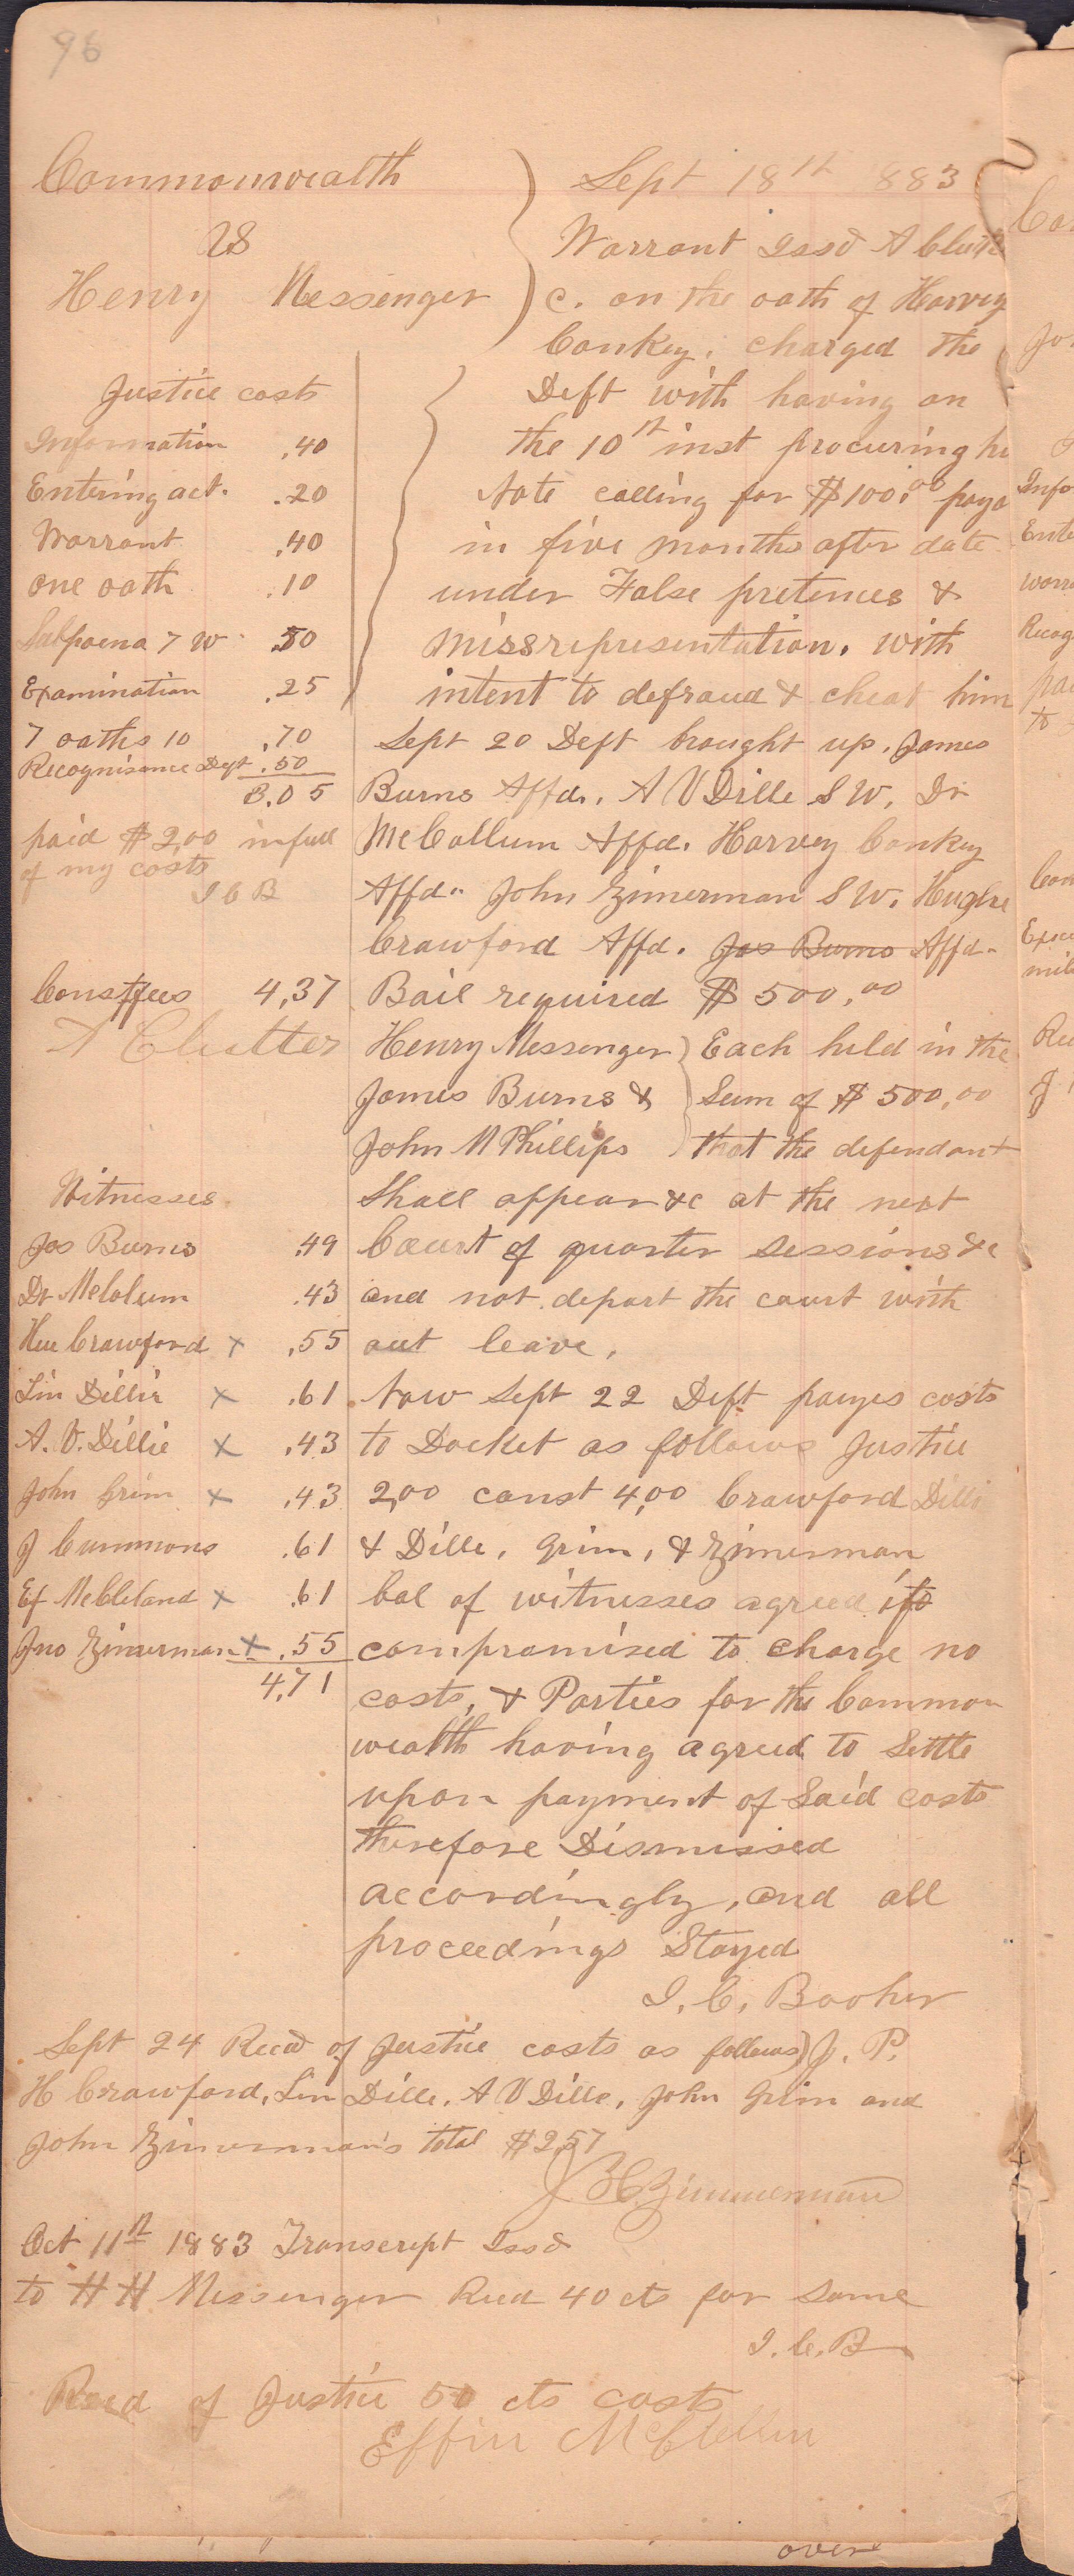 96
Commonwealth
vs
Henry Messenger
Sept 18th 1883
Warrant Issd A Clutte
c. on the oath of Harvey
Conkey, charged the
Deft with having on
the 10th inst procuring hi
Note calling for $100.00 paya
in five months after date
under False pretences &
missrepresentation. with
intent to defraud & cheat him
Justice costs
Information .40
Entering act. .20
Warrant .40
one oath .10
Subpoena 7 W .50
Examination .25
7 oaths 10 .70
Recognisance Deft .50
3.05
paid $2,00 in full
of my costs
I C B
Const fees 4,37
A Clutter
Sept 20 Deft brought up. James
Burns Affd. A V Dille S W. Dr
McCollum Affd. Harvey Conkey
Affd. John Zimerman S W. Hughe
Crawford Affd. Jas Burns Affd.
Bail required $500,00
Henry Messenger
James Burns &
John M Phillips
Each held in the
Sum of $500,00
that the defendant
Shall appear &c at the next
Court of quarter sessions &c
and not depart the court with
out leave.
Witnesses
Jas Burns .49
Dr McColum .43
Hue Crawford x .55
Lin Dillie x .61
A. V. Dillie x .43
John Grim x .43
J Cummons .61
Ef McCleland x .61
Jno Zimerman x .55
4,71
Now Sept 22 Deft payes costs
to Docket as follows Justice
2,00 const 4,00 Crawford Dille
& Dille, Grim, & Zimerman
bal of witnesses agreed if to
compromised to charge no
costs, & Parties for the Common
wealth having agreed to Settle
upon payment of Said costs
therefore Dismissed
accordingly, and all
proceedings Stayed
I. C. Booher
J. P.
Sept 24 Recd of Justice costs as follows
H Crawford, Lin Dille, A V Dille, John Grim and
John Zimermans total $2,57
J H Zimmerman
Oct 11th 1883 Transcript Issd
to H H Messenger Recd 40 cts for Same
I. C. B
Recd of Justice 50 cts costs
Effie McClellan
over